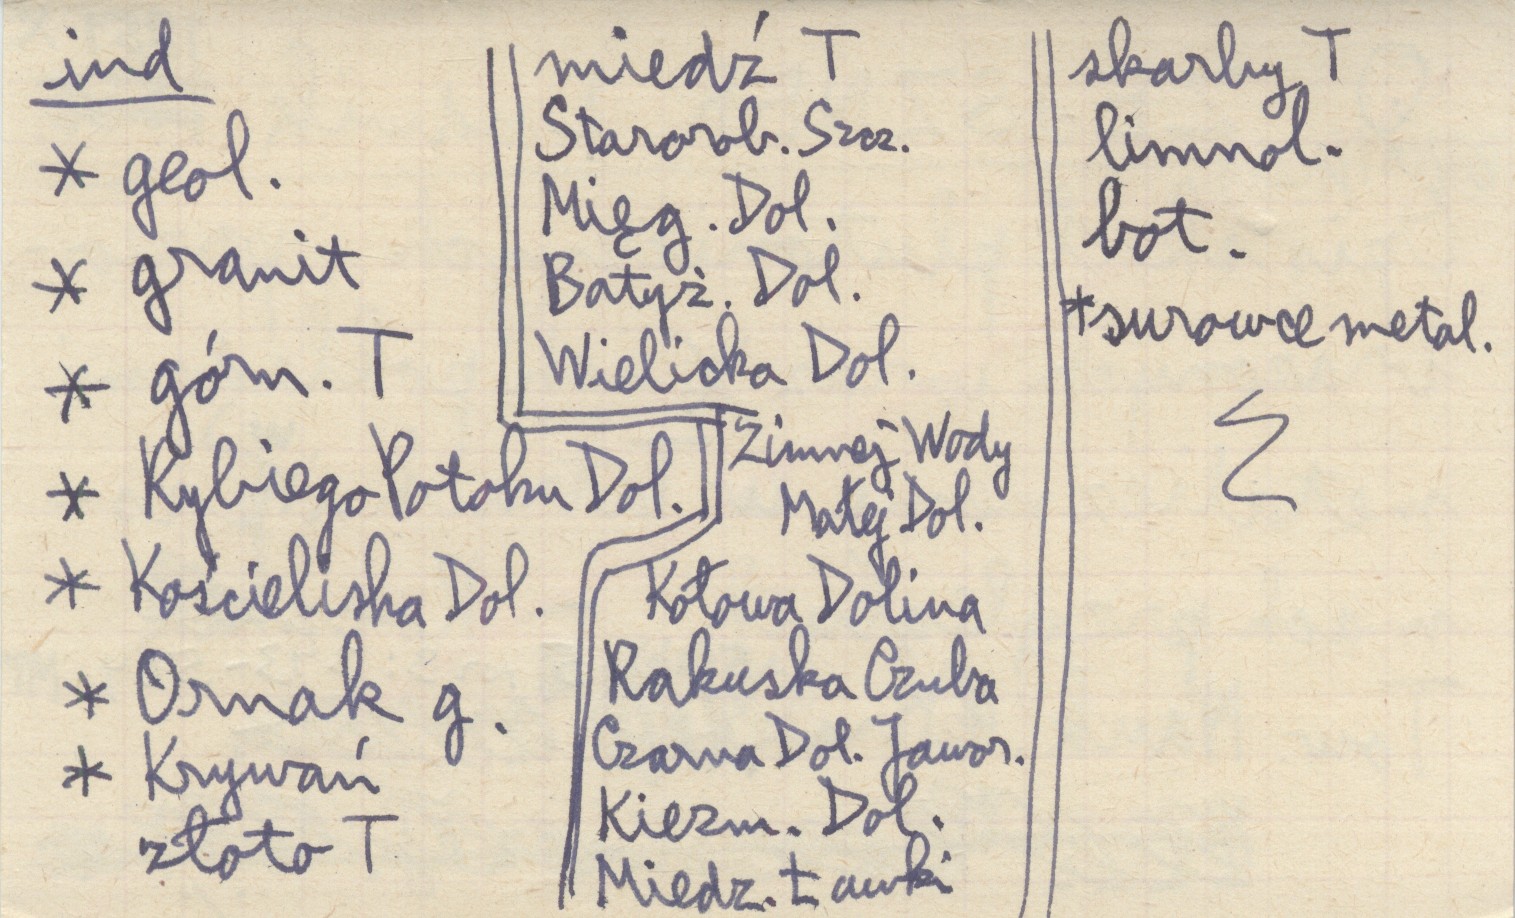 ind
* geol.
* granit
* górn. T
* Rybiego Potoku Dol.
* Kościeliska Dol.
* Ornak g.
* Krywań
złoto T
miedź T
Starorob. Szcz.
Mięg. Dol.
Batyż. Dol.
Wielicka Dol.
Zimnej Wody
Małej Dol.
Kołowa Dolina
Rakuska Czuba
Czarna Dol. Jawor.
Kiezm. Dol.
Miedz. Ławki
skarby T
limnol.
bot.
*surowce metal.